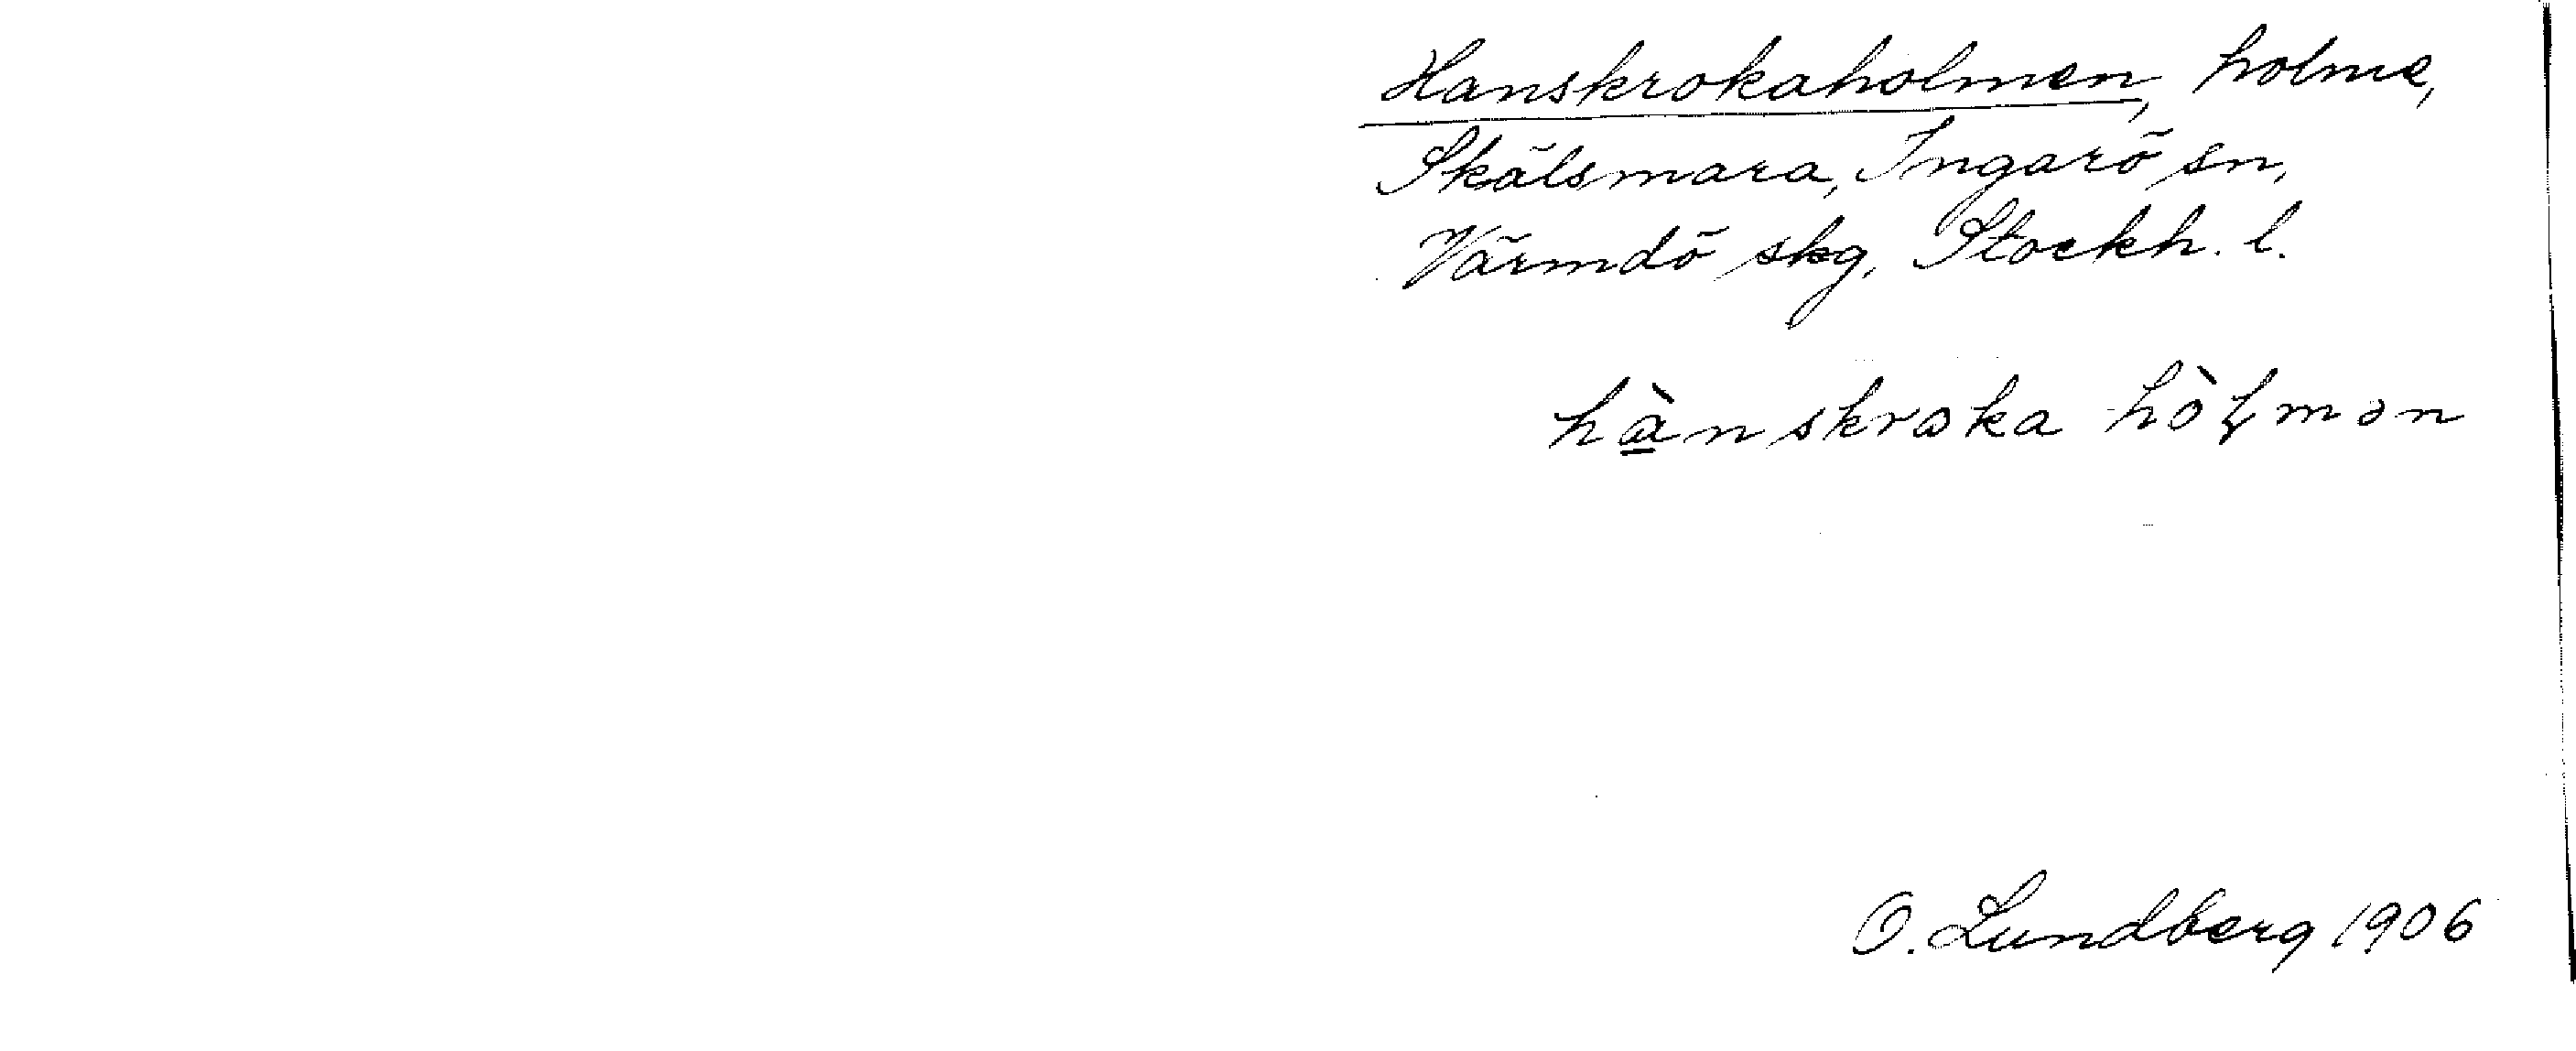 Hanskrokaholmen, holme,
Skälsmara, Ingarö sn,
Värmdö skg, Stockh. l.
hànskroka hòɽmən
O. Lundberg 1906